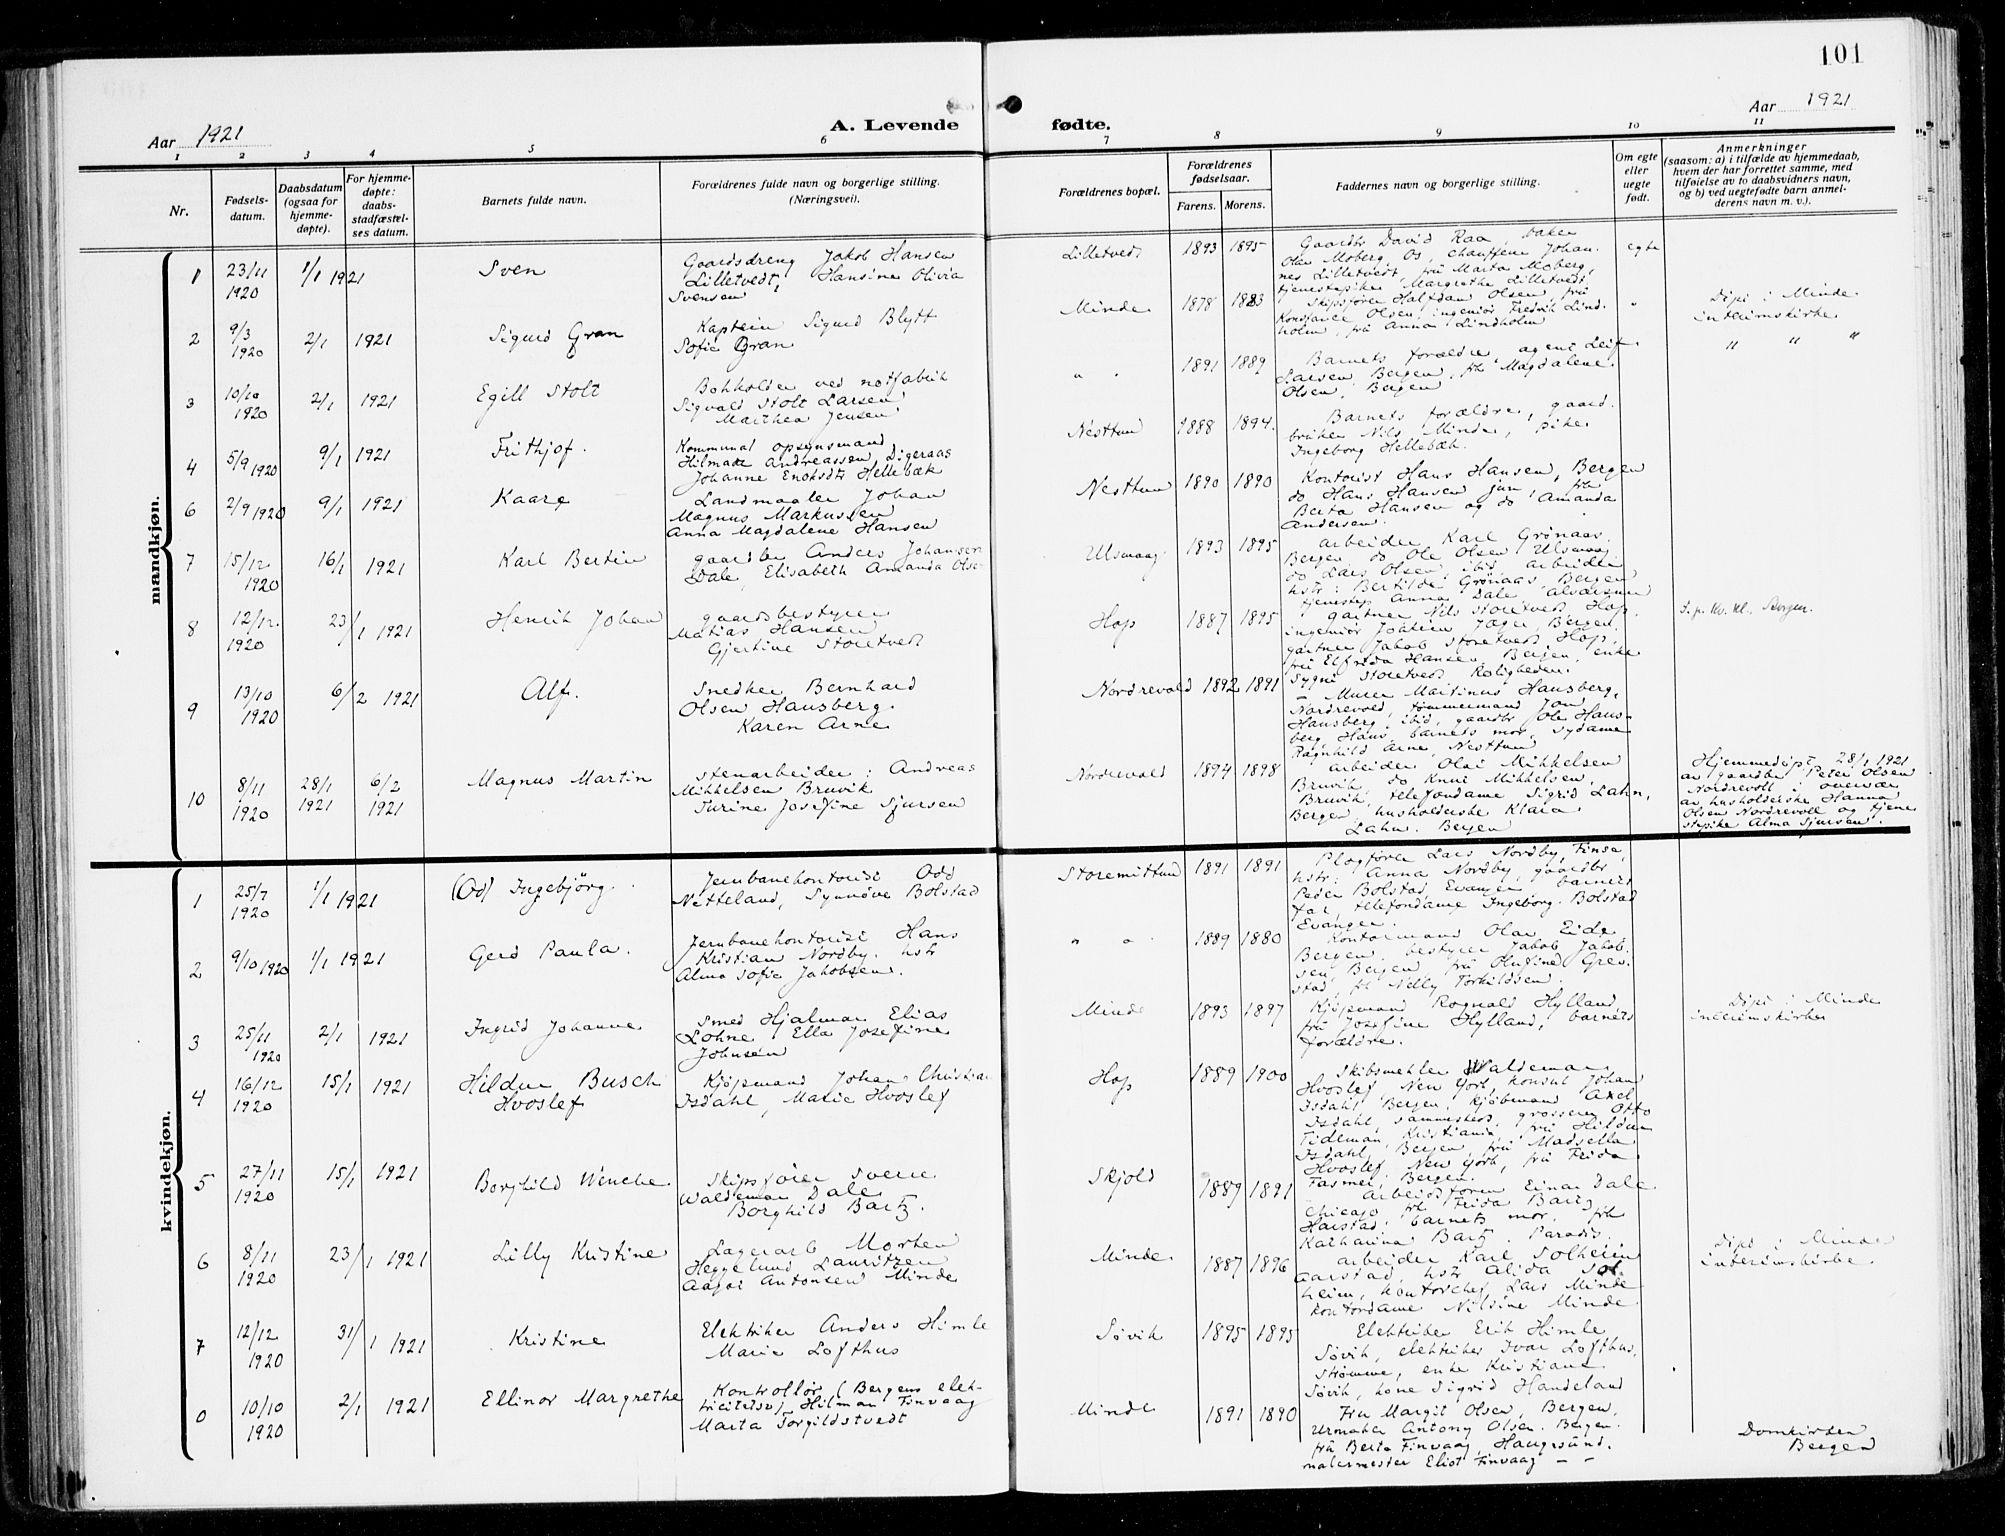 101
Aar 1921
A. Levende fødte.
Aar 1921
1 2 3 4 5 6 7 8 9 10 11
Nr.
Fødsels-
datum.
Daabsdatum
(ogsaa for
hjemme-
døpte).
For hjemme-
døpte:
daabs-
stadfæstel-
ses datum.
Barnets fulde navn.
Forældrenes fulde navn og borgerlige stilling.
(Næringsvei).
Forældrenes bopæl.
Forældrenes
fødselsaar.
Farens. Morens.
Faddernes navn og borgerlige stilling.
Om egte
eller
uegte
født.
Anmerkninger
(saasom: a) i tilfælde av hjemmedaab,
hvem der har forrettet samme, med
tilføielse av to daabsvidners navn,
og b) ved uegtefødte barn anmel-
derens navn m. v.).
mandkjøn.
1 23/11 1920 1/1 1921 Sven
Gaardsdreng Jakob Hansen
Lilletvedt, Hansine Olivia
Svensen
Lilletvedt 1893 1895
Gaardbr David Raa, baker
Olav Moberg, Os, chauffeur Johan-
nes Lilletvedt, fru Marta Moberg,
tjenestepike Margrethe Lilletvedt
egte
2 9/3 1920 2/1 1921 Sigurd Gran
Kaptein Sigurd Blytt
Sofie Gran
Minde 1878 1883
Skipsfører Halfdan Olsen, fru
Konstance Olsen, ingeniør Fredrik Lind-
holm, fru Anna Lindholm
"
Døpt i Minde
interimskirke
3 10/10 1920 2/1 1921 Egill Stolt
Bokholder ved notfabrik
Sigvald Stolt Larsen
Marthea Jensen
" " 1891 1889
Barnets forældre, agent Leif
Larsen, Bergen, frk Magdalene
Olsen, Bergen
" " "
4 5/9 1920 9/1 1921 Frithjof.
Kommunal opsynsmand
Hilmar Andreassen Digeraas
Johanne Enoksdtr Hellebæk
Nesttun 1888 1894.
Barnets forældre, gaard-
bruker Nils Minde, pike
Ingeborg Hellebæk.
6 2/9 1920 9/1 1921 Kaare
Landmaaler Johan
Magnus Markussen
Anna Magdalene Hansen
Nesttun 1890 1890
Kontorist Hans Hansen, Bergen
do Hans Hansen jun, frk
Berta Hansen og do Amanda
Andersen.
7 15/12 1920 16/1 1921 Karl Bertin
gaardbr Anders Johansen
Dale, Elisabeth Amanda Olsen
Ulsmaag 1893 1895
arbeider Karl Grønaas
Bergen do Ole Olsen Ulsmaag
do Lars Olsen, ibid, arbeider
hstr: Bertilde Grønaas, Bergen
tjenestep Anna Dale Alværsun
8 12/12. 1920 23/1 1921 Henrik Johan
gaardsbestyrer
Matias Hansen
Gjertine Storetvedt
Hop 1887 1895
gartner Nils Storetvedt, Hop.
ingeniør Joakim Jæger, Bergen,
gartner Jakob Storetvedt Hop,
fru Elfrida Hansen, Bergen, enke
Sygni Storetvedt Roligheden.
9 13/10 1920 6/2 1921 Alf.
Snedker Bernhard
Olsen Hausberg.
Karen Arne
Nordrevold 1892 1891
Murer Martinus Hausberg,
Nordrevold, tømmermand Jon
Hausberg, ibid, gaardbr Ole Haus-
berg Haus, barnets mor, sydame
Ragnhild Arne, Nesttun
10 8/11 1920 28/1 1921 6/2 1921 Magnus Martin
Stenarbeider: Andreas
Mikkelsen Bruvik
Turine Josefine Sjursen
Nordrevold 1894 1898
arbeider Olai Mikkelsen
Bruvik, do Knut Mikkelsen,
Bruvik, telefondame Sigrid Lahn,
Bergen, husholderske Klara
Lahn. Bergen
Hjemmedøpt 28/1 1921
av gaardbr Peter Olsen
Nordrevoll i overvær
av husholderske Hanna
Olsen Nordrevoll og tjene
stepike Alma Sjursen.
kvindekjøn.
1 25/7 1920 1/1 1921 (Od) Ingebjörg.
Jernbanekontorist Odd
Netteland, Synnöve Bolstad
Storemittun 1891 1891
Plogfører Lars Nordby, Finse,
hstr: Anna Nordby, gaardbr
Peder Bolstad, Evanger barnets
far, telefondame Ingeborg Bolstad
Evanger.
2 9/10 1920 1/1 1921 Gerd Paula.
Jernbanekontorist Hans
Kristian Nordby. hstr
Alma Sofie Jakobsen.
" " 1889 1880
Kontormand Olav Eide,
Bergen, bestyrer Jakob Jakob-
sen, Bergen, fru Olufine Gres-
stad, fr Nelly Torkildsen.
3 25/11 1920 2/1 1921 Ingrid Johanne
Smed Hjalmar Elias
Lohne Ella Josefine
Johnsen
Minde 1893 1897
Kjøpmand Rognald Hylland
fru Josefine Hylland, barnets
forældre.
Døpt i Minde
interimskirke
4 16/12 1920 15/1 1921 Hildur Busch
Hvoslef
Kjøpmand Johan Christian
Isdahl, Marie Hvoslef
Hop 1889 1900
Skibsmekler Waldemar
Hvoslef, New York, konsul Johan
Isdahl Bergen, kjøbmand Axel
Isdahl, sammesteds, grosserer Otto
Tideman, Kristiania, fru Hildur
Isdahl, Bergen, fru Madsella
Hvoslef, New York, fru Frida
Fasmer, Bergen.
5 27/11 1920 15/1 1921 Borghild Wenche
Skipsfører Sverre
Waldemar Dale
Borghild Bartz.
Skjold 1889 1891
arbeidsform Einar Dale
Chicago frk Frida Bartz
Harstad, barnets mor, frk
Katharina Bartz Paradis.
6 8/11 1920 23/1 1921 Lilly Kristine
Lagerarb Morten
Heggelund Lauritzen
Aagot Antonsen Minde
Minde 1887 1896
arbeider Karl Solheim
Aarstad, hstr Alida Sol-
heim, kontorchef Lars Minde
kontordame Nilsine Minde.
Døpt i Minde
interimskirke.
7 12/12 1920 31/1 1921 Kristine
Elektriker Anders Himle
Marie Lofthus
Søvik 1895 1895
Elektriker Erik Himle,
Søvik, elektriker Ivar Lofthus,
Strømme, enke Kristiane
Søvik, kone Sigrid Handeland
0 10/10 1920 2/1 1921 Ellinor Margrethe
Kontrollør (Bergens elek-
tricitetsv) Hilmar Finvaag
Marta Torgildstvedt
Minde 1891 1890
Fru Margit Olsen, Bergen,
Urmaker Antony Olsen, Bergen.
fru Berta Finvaag, Haugesund.
malermester Eliot Finvaag – –
Domkirken
Bergen